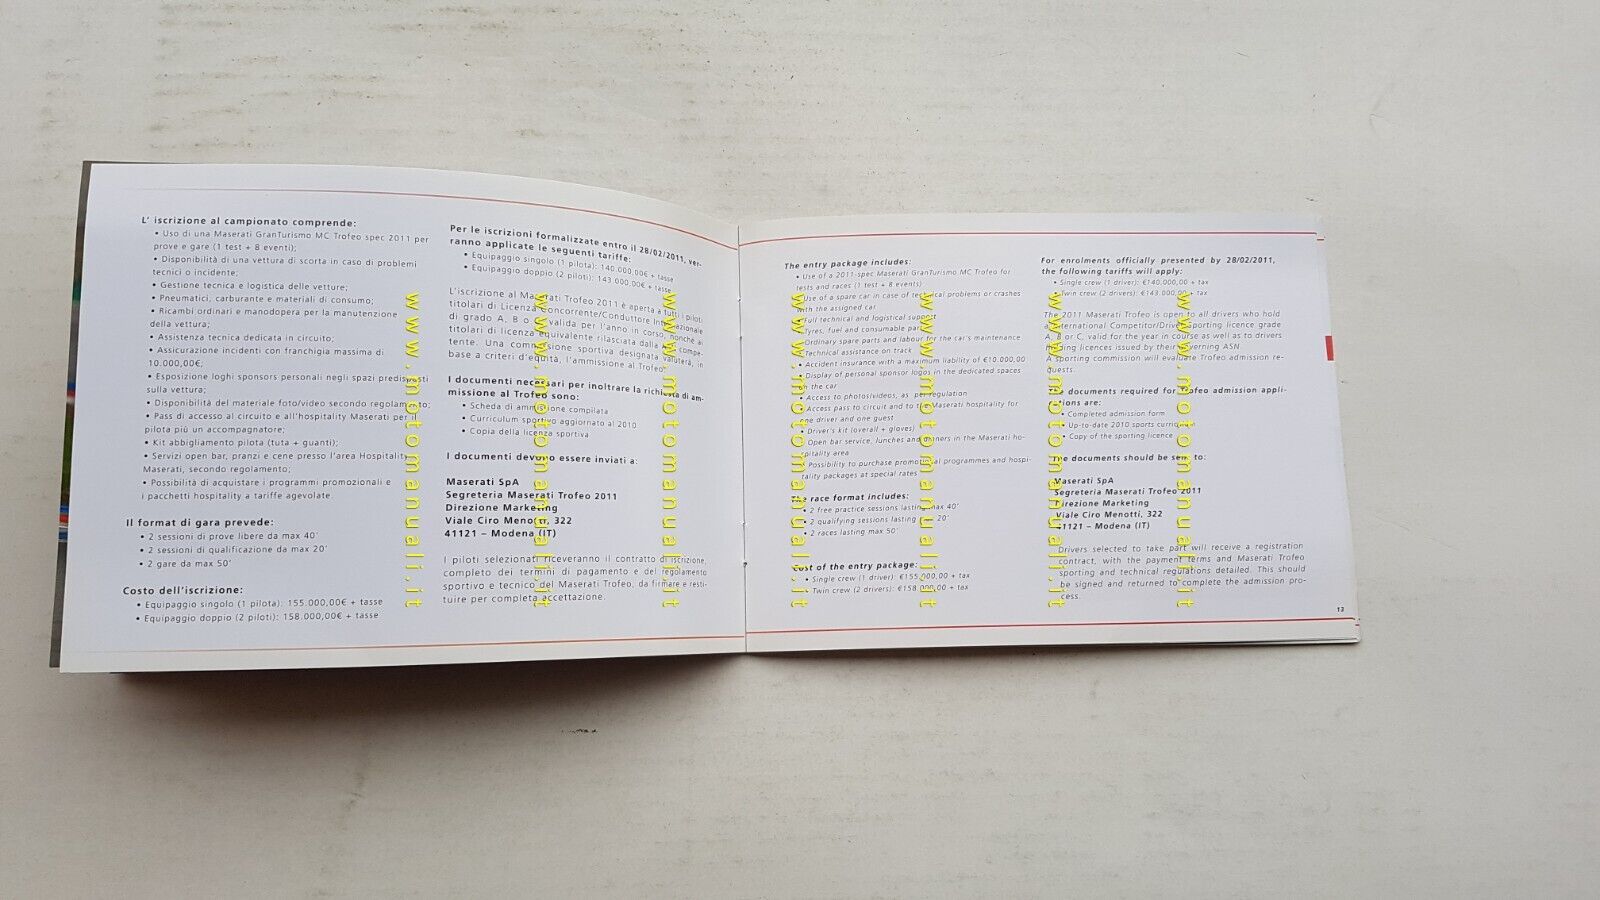 L' iscrizione al campionato comprende:
• Uso di una Maserati GranTurismo MC Trofeo spec 2011 per
prove e gare (1 test + 8 eventi);
• Disponibilità di una vettura di scorta in caso di problemi
tecnici o incidente;
• Gestione tecnica e logistica delle vetture;
• Pneumatici, carburante e materiali di consumo;
• Ricambi ordinari e manodopera per la manutenzione
della vettura;
• Assistenza tecnica dedicata in circuito;
• Assicurazione incidenti con franchigia massima di
10.000,00€;
• Esposizione loghi sponsors personali negli spazi predisposti
sulla vettura;
• Disponibilità del materiale foto/video secondo regolamento;
• Pass di accesso al circuito e all'hospitality Maserati per il
pilota più un accompagnatore;
• Kit abbigliamento pilota (tuta + guanti);
• Servizi open bar, pranzi e cene presso l'area Hospitality
Maserati, secondo regolamento;
• Possibilità di acquistare i programmi promozionali e
i pacchetti hospitality a tariffe agevolate.
Il format di gara prevede:
• 2 sessioni di prove libere da max 40'
• 2 sessioni di qualificazione da max 20'
• 2 gare da max 50'
Costo dell'iscrizione:
• Equipaggio singolo (1 pilota): 155.000,00€ + tasse
• Equipaggio doppio (2 piloti): 158.000,00€ + tasse
Per le iscrizioni formalizzate entro il 28/02/2011, ver-
ranno applicate le seguenti tariffe:
• Equipaggio singolo (1 pilota): 140.000,00€ + tasse
• Equipaggio doppio (2 piloti): 143.000,00€ + tasse
L'iscrizione al Maserati Trofeo 2011 è aperta a tutti i Piloti
titolari di Licenza Concorrente/Conduttore Internazionale
di grado A, B o C, valida per l'anno in corso, nonché ai
titolari di licenza equivalente rilasciata dalla ASN compe-
tente. Una commissione sportiva designata valuterà, in
base a criteri d'equità, l'ammissione al Trofeo.
I documenti necessari per inoltrare la richiesta di am-
missione al Trofeo sono:
• Scheda di ammissione compilata
• Curriculum sportivo aggiornato al 2010
• Copia della licenza sportiva
I documenti devono essere inviati a:
Maserati SpA
Segreteria Maserati Trofeo 2011
Direzione Marketing
Viale Ciro Menotti, 322
41121 – Modena (IT)
I piloti selezionati riceveranno il contratto di iscrizione,
completo dei termini di pagamento e del regolamento
sportivo e tecnico del Maserati Trofeo, da firmare e resti-
tuire per completa accettazione.
The entry package includes:
• Use of a 2011-spec Maserati GranTurismo MC Trofeo for
tests and races (1 test + 8 events)
• Use of a spare car in case of technical problems or crashes
with the assigned car
• Full technical and logistical support
• Tyres, fuel and consumable parts
• Ordinary spare parts and labour for the car's maintenance
• Technical assistance on track
• Accident insurance with a maximum liability of €10.000,00
• Display of personal sponsor logos in the dedicated spaces
on the car
• Access to photos/videos, as per regulation
• Access pass to circuit and to the Maserati hospitality for
one driver and one guest
• Driver's kit (overall + gloves)
• Open bar service, lunches and dinners in the Maserati ho-
spitality area
• Possibility to purchase promotional programmes and hospi-
tality packages at special rates
The race format includes:
• 2 free practice sessions lasting max 40'
• 2 qualifying sessions lasting max 20'
• 2 races lasting max 50'
Cost of the entry package:
• Single crew (1 driver): €155.000,00 + tax
• Twin crew (2 drivers): €158.000,00 + tax
For enrolments officially presented by 28/02/2011,
the following tariffs will apply:
• Single crew (1 driver): €140.000,00 + tax
• Twin crew (2 drivers): €143.000,00 + tax
The 2011 Maserati Trofeo is open to all drivers who hold
an International Competitor/Driver Sporting licence grade
A, B or C, valid for the year in course as well as to drivers
holding licences issued by their governing ASN.
A sporting commission will evaluate Trofeo admission re-
quests.
The documents required for Trofeo admission appli-
cations are:
• Completed admission form
• Up-to-date 2010 sports curriculum
• Copy of the sporting licence
The documents should be sent to:
Maserati SpA
Segreteria Maserati Trofeo 2011
Direzione Marketing
Viale Ciro Menotti, 322
41121 – Modena (IT)
Drivers selected to take part will receive a registration
contract, with the payment terms and Maserati Trofeo
sporting and technical regulations detailed. This should
be signed and returned to complete the admission pro-
cess.
13
www.motomanuali.it
www.motomanuali.it
www.motomanuali.it
www.motomanuali.it
www.motomanuali.it
www.motomanuali.it
www.motomanuali.it